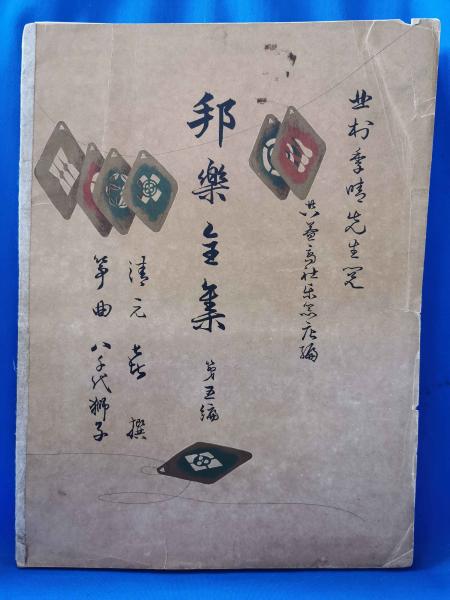 北村季晴先生閲
共益商社楽器店編
邦樂全集 第五編
清元 喜撰
箏曲 八千代獅子